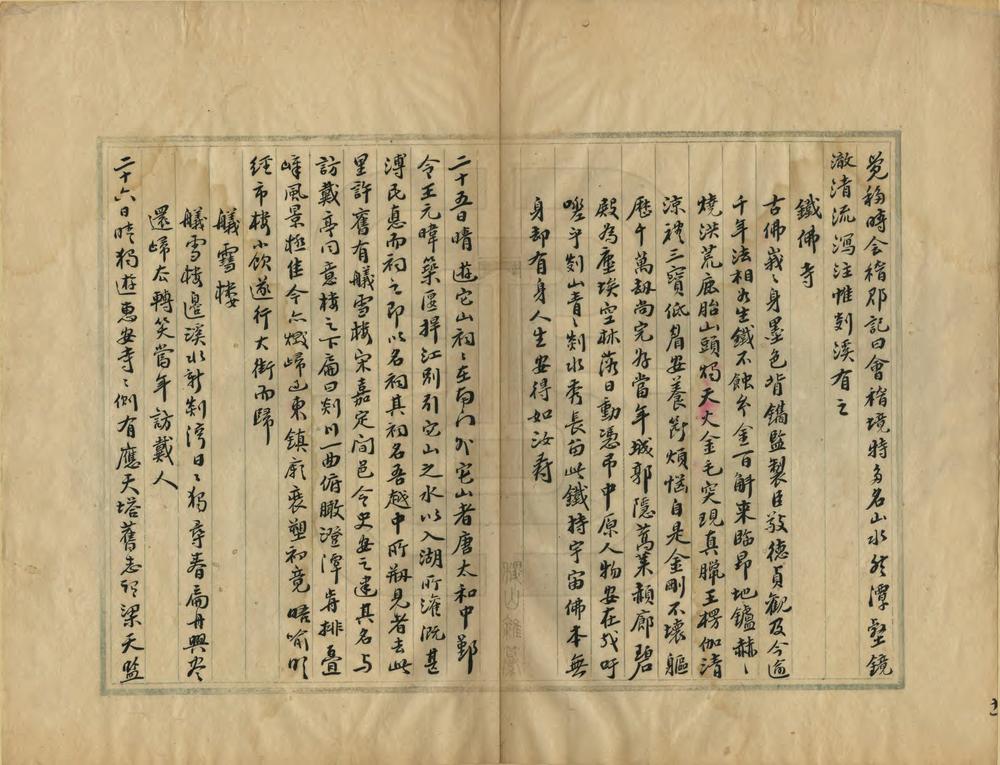 覓移時會稽郡記曰會稽境特多名山水於潭壑鏡
澈清流瀉注惟剡溪有之
鐵佛寺
古佛峩〻身墨色背鐫監製臣敬德貞觀及今逾
千年法相如生鐵不蝕參金百斛来臨昂地鑪赫〻
燒洪荒鹿胎山頭燭天火金毛突現真臘王楞伽清
涼禮三寳低眉安養斷煩惱自是金剛不壞軀
歷千萬劫尚完好當年城郭隱蒿萊頹廊碧
殿為塵埃空林落日動憑吊中原人物安在哉吁
嗟乎剡山青〻剡水秀長留此鐵持宇宙佛本無
身却有身人生安得如汝壽
二十五日晴遊它山祠〻在南門外它山者唐太和中鄞
令王元暐築堰捍江别引它山之水以入湖所灌溉甚
溥民惠而祠之即以名祠其祠名吾越中所剏見者去此
里許舊有艤雪樓宋嘉定間邑令史安之建其名与
訪戴亭同意樓之下扁曰剡川一曲俯瞰澄潭岢排疊
嶂風景極佳今亦燬歸過東鎮廟衮塑初竟晤喻明
經市樓小飲遂行大街而歸
艤雪樓
艤雪樓邉溪水新剡灣日〻獨尋春扁舟興尽
還歸去轉笑當年訪戴人
二十六日晴獨遊惠安寺〻側有應天塔舊志謂梁天監